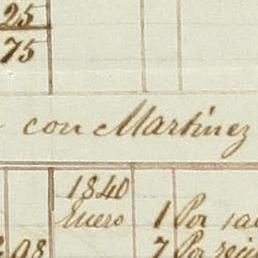 25
75
con Martinez
1840
Enero 1 Por
98 7 Por